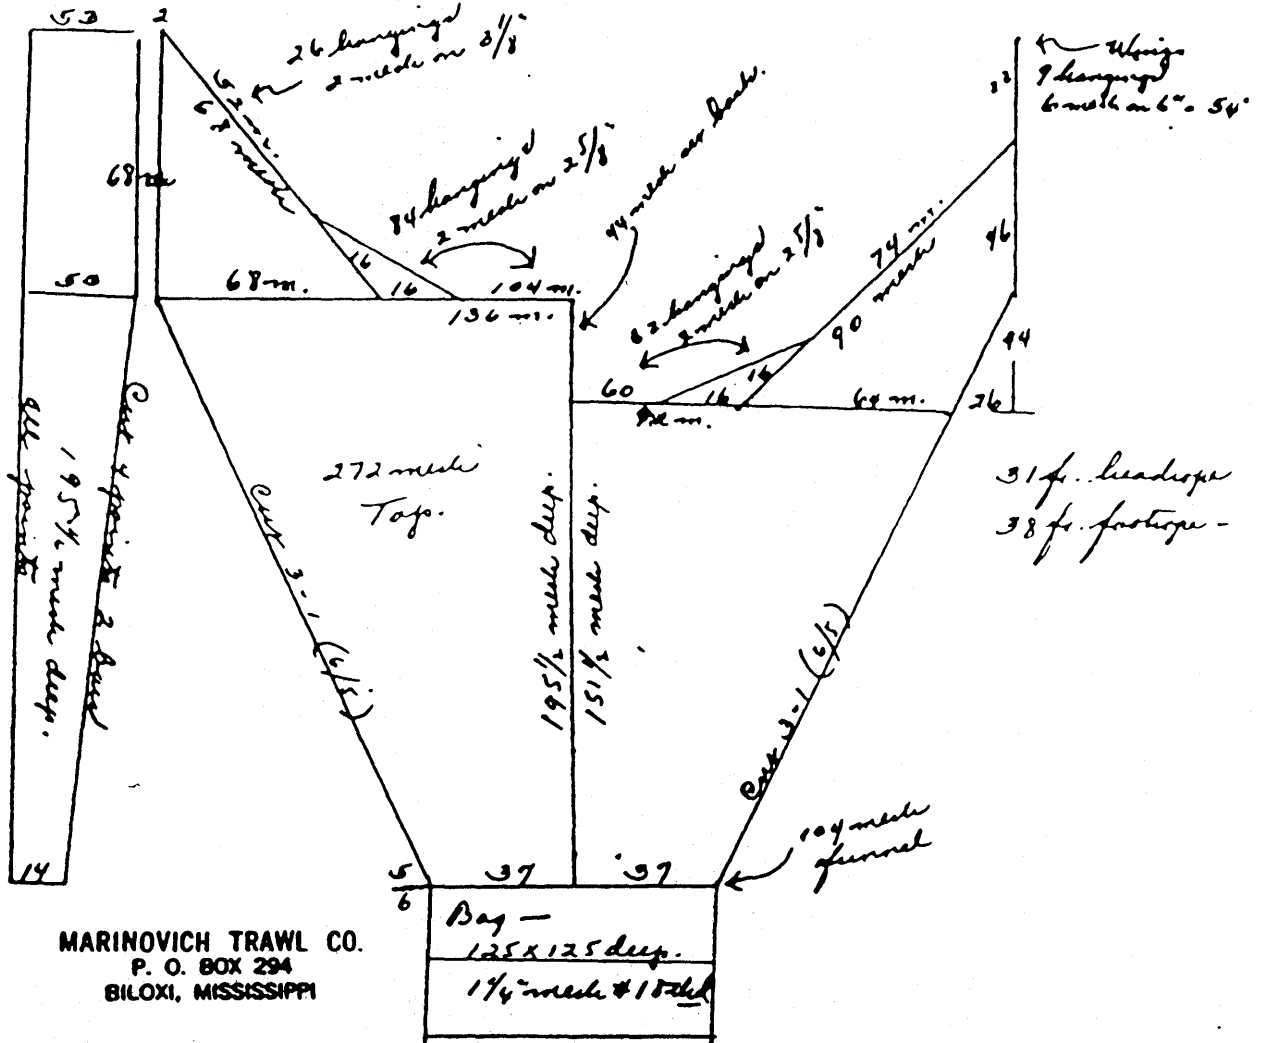 53
2
26 hangings
2 mesh on 3 1/8"
62 m.
68 mesh
68 m
84 hangings
2 mesh on 2 5/8"
44 mesh over back.
Wings
9 hangings
6 mesh on 6" = 54"
22
50
68 m.
16
16
104 m.
136 m.
82 hangings
2 mesh on 2 5/8"
74 m.
90 mesh
46
44
26
60
16
16
64 m.
92 m.
31 ft. headrope
38 ft. footrope -
all points
195 1/2 mesh deep.
Cut 4 points 2 bars
272 mesh
Top.
Cut 3-1 (6/5)
195 1/2 mesh deep.
151 1/2 mesh deep.
Cut 3-1 (6/5)
104 mesh
funnel
14
5
6
37
37
Bag -
125 x 125 deep.
1 1/4" mesh # 18 thd
MARINOVICH TRAWL CO.
P. O. BOX 294
BILOXI, MISSISSIPPI